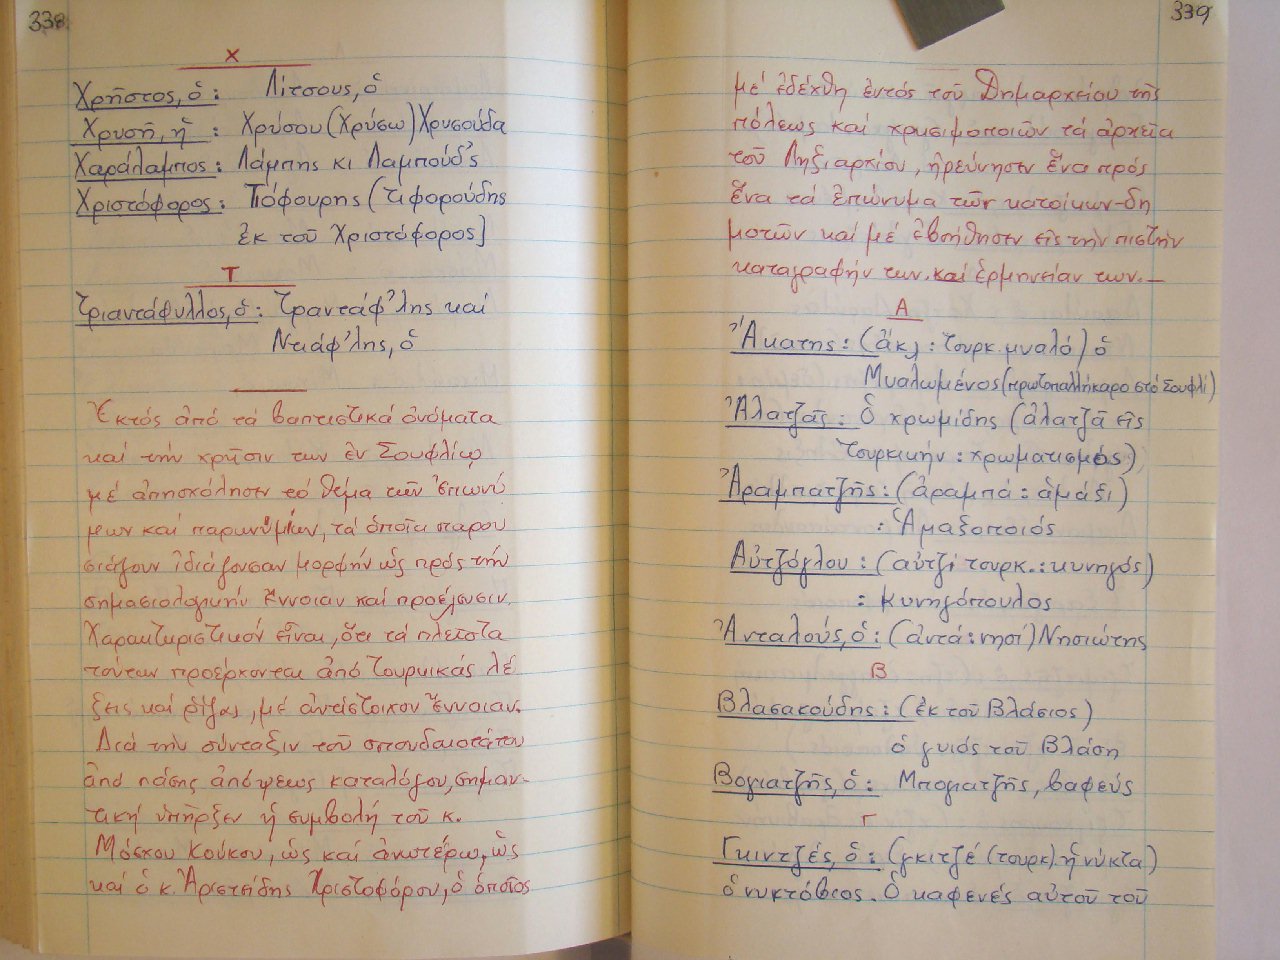 338
Χ
Χρῆστος, ὁ: Λίτσους, ὁ
Χρυσῆ, ἡ: Χρύσου (Χρύσω) Χρυσούδα
Χαράλαμπος: Λάμπης κι Λαμπούδ'ς
Χριστόφορος: Τιόφουρης (τιφορούδης
ἐκ τοῦ Χριστόφορος]
Τ
Τριαντάφυλλος, ὁ: Τραντάφ'λης καί
Ντάφ'λης, ὁ
Ἐκτός ἀπό τά βαπτιστικά ὀνόματα
καί τήν χρῆσιν των ἐν Σουφλίῳ,
μέ ἀπησχόλησεν τό θέμα τῶν ἐπωνύ
μων καί παρωνυμίων, τά ὁποῖα παρου
σιάζουν ἰδιάζουσαν μορφήν ὡς πρός τήν
σημασιολογικήν ἔννοιαν καί προέλευσιν.
Χαρακτηριστικόν εἶναι, ὅτι τά πλεῖστα
τούτων προέρχονται ἀπό Τουρκικάς λέ
ξεις καί ρίζας, μέ ἀντίστοιχον ἔννοιαν.
Διά τήν σύνταξιν τοῦ σπουδαιοτάτου
ἀπό πάσης ἀπόψεως καταλόγου, σημαν-
τική ὑπῆρξεν ἡ συμβολή τοῦ κ.
Μόσχου Κούκου, ὡς καί ἀνωτέρω, ὡς
καί ὁ κ. Ἀριστείδης Χριστοφόρου, ὁ ὁποῖος
339
μέ ἐδέχθη ἐντός τοῦ Δημαρχείου τῆς
πόλεως καί χρησιμοποιῶν τά ἀρχεῖα
τοῦ Ληξιαρχίου, ἠρεύνησεν ἕνα πρός
ἕνα τά ἐπώνυμα τῶν κατοίκων-δη
μοτῶν καί μέ ἐβοήθησεν εἰς τήν πιστήν
καταγραφήν των καί ἑρμηνείαν των.—
Α
Ἀκατης: (ἄκ, : τουρκ. μυαλό) ὁ
Μυαλωμένος (πρωτοπαλλήκαρο στό Σουφλί)
Ἀλατζᾶς: Ὁ χρωμίδης (ἀλατζᾶ εἰς
τουρκικήν: χρωματισμός)
Ἀραμπατζῆς: (ἀραμπά: ἁμάξι)
: Ἁμαξοποιός
Αὐτζόγλου: (αὐτζί τουρκ.: κυνηγός)
: Κυνηγόπουλος
Ἀνταλούς, ὁ: (ἀντά: νησί) Νησιώτης
Β
Βλασακούδης: (ἐκ τοῦ Βλάσιος)
ὁ γυιός τοῦ Βλάση
Βογιατζῆς, ὁ: Μπογιατζῆς, βαφεύς
Γ
Γκιντζές, ὁ: (γκιτζέ (τουρκ) ἡ νύκτα)
ὁ νυκτόβιος. Ὁ καφενές αὐτοῦ τοῦ